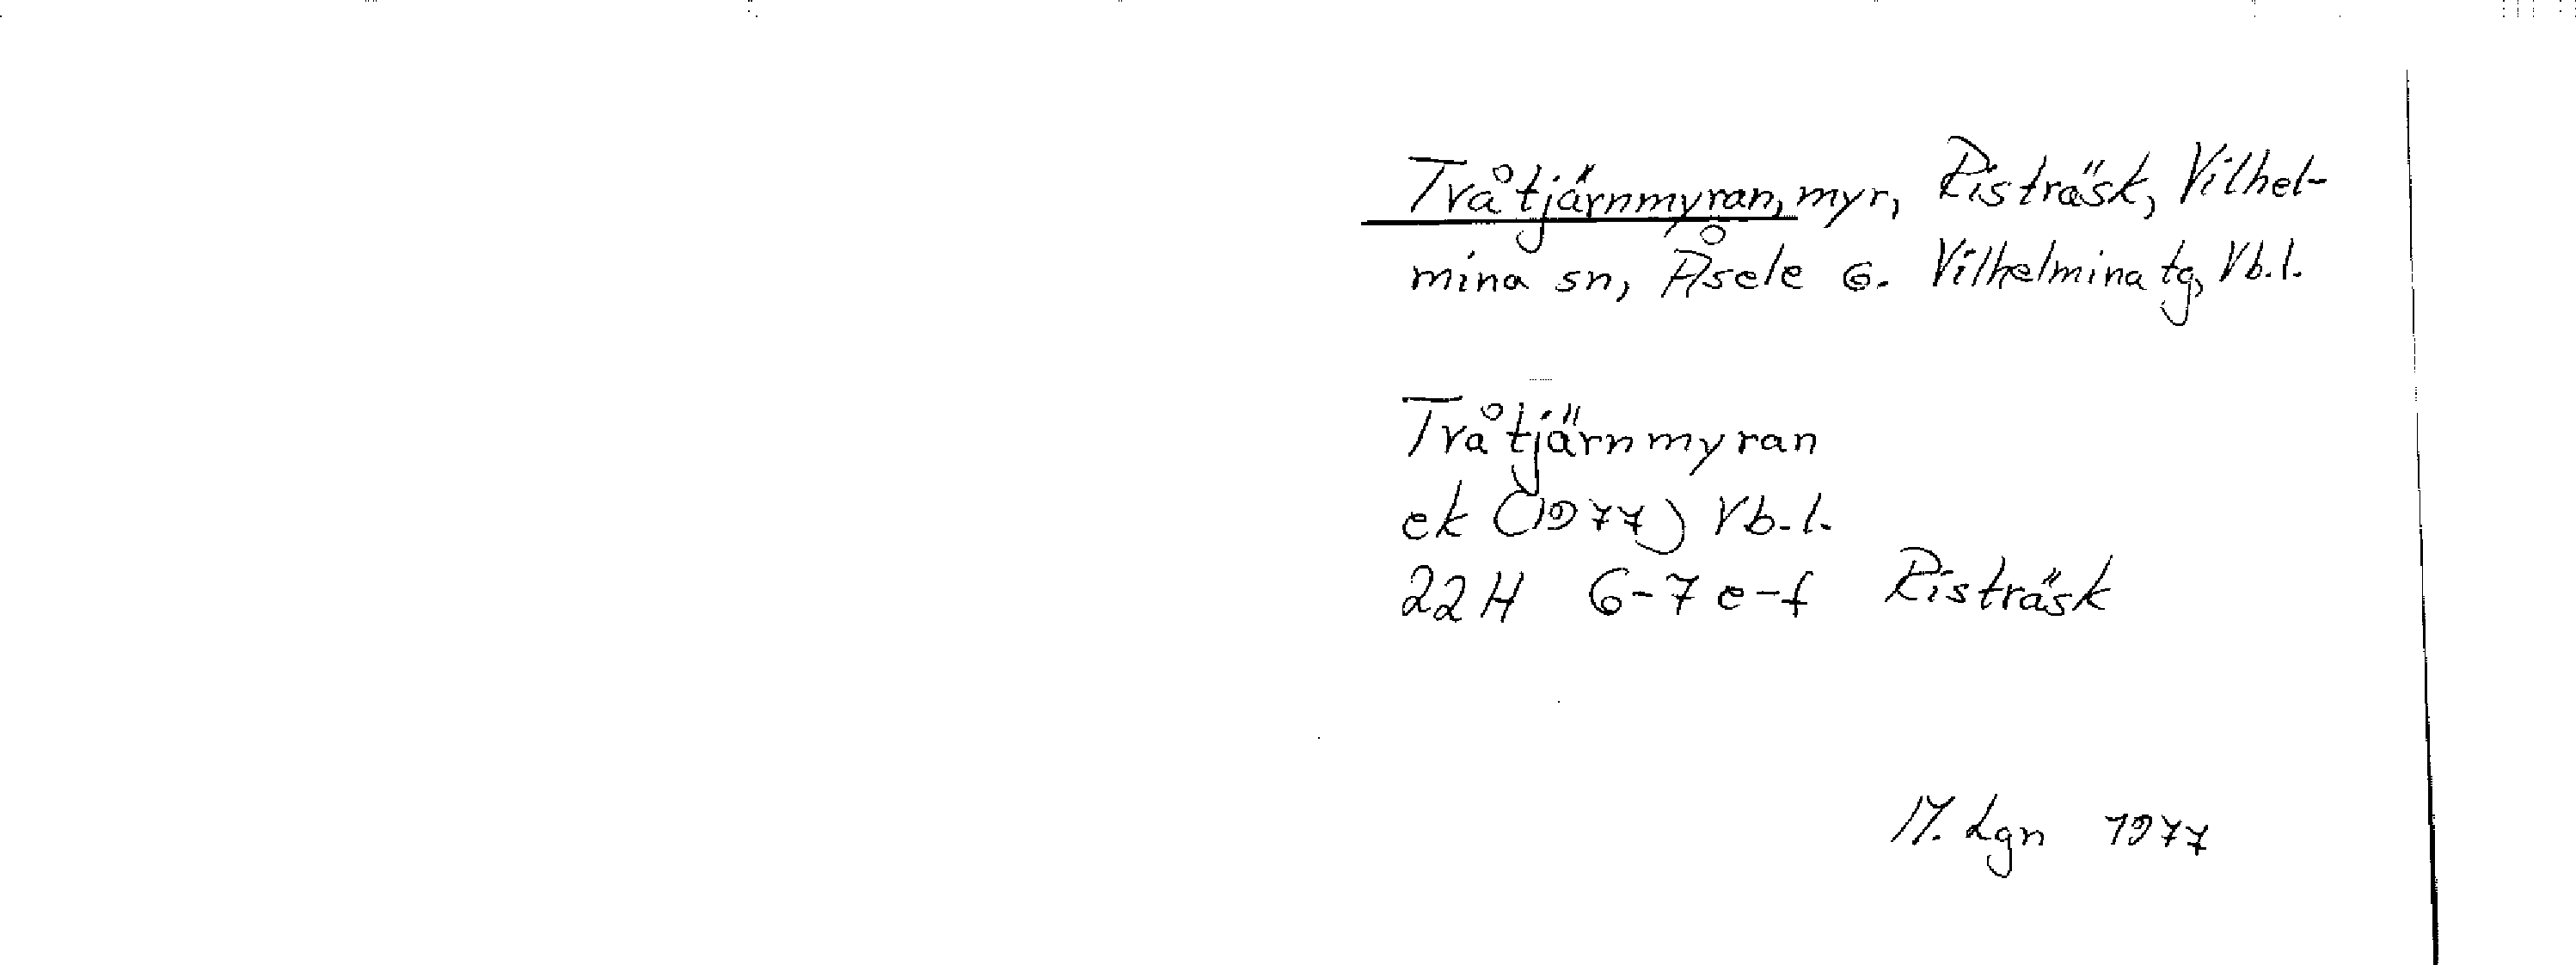 Tvåtjärnmyran, myr, Risträsk, Vilhel-
mina sn, Åsele 6. Vilhelmina tg, Vb.l.
Tvåtjärnmyran
ek (1977) Vb.l.
22 H 6-7 e-f Risträsk
M. Lgn 1977